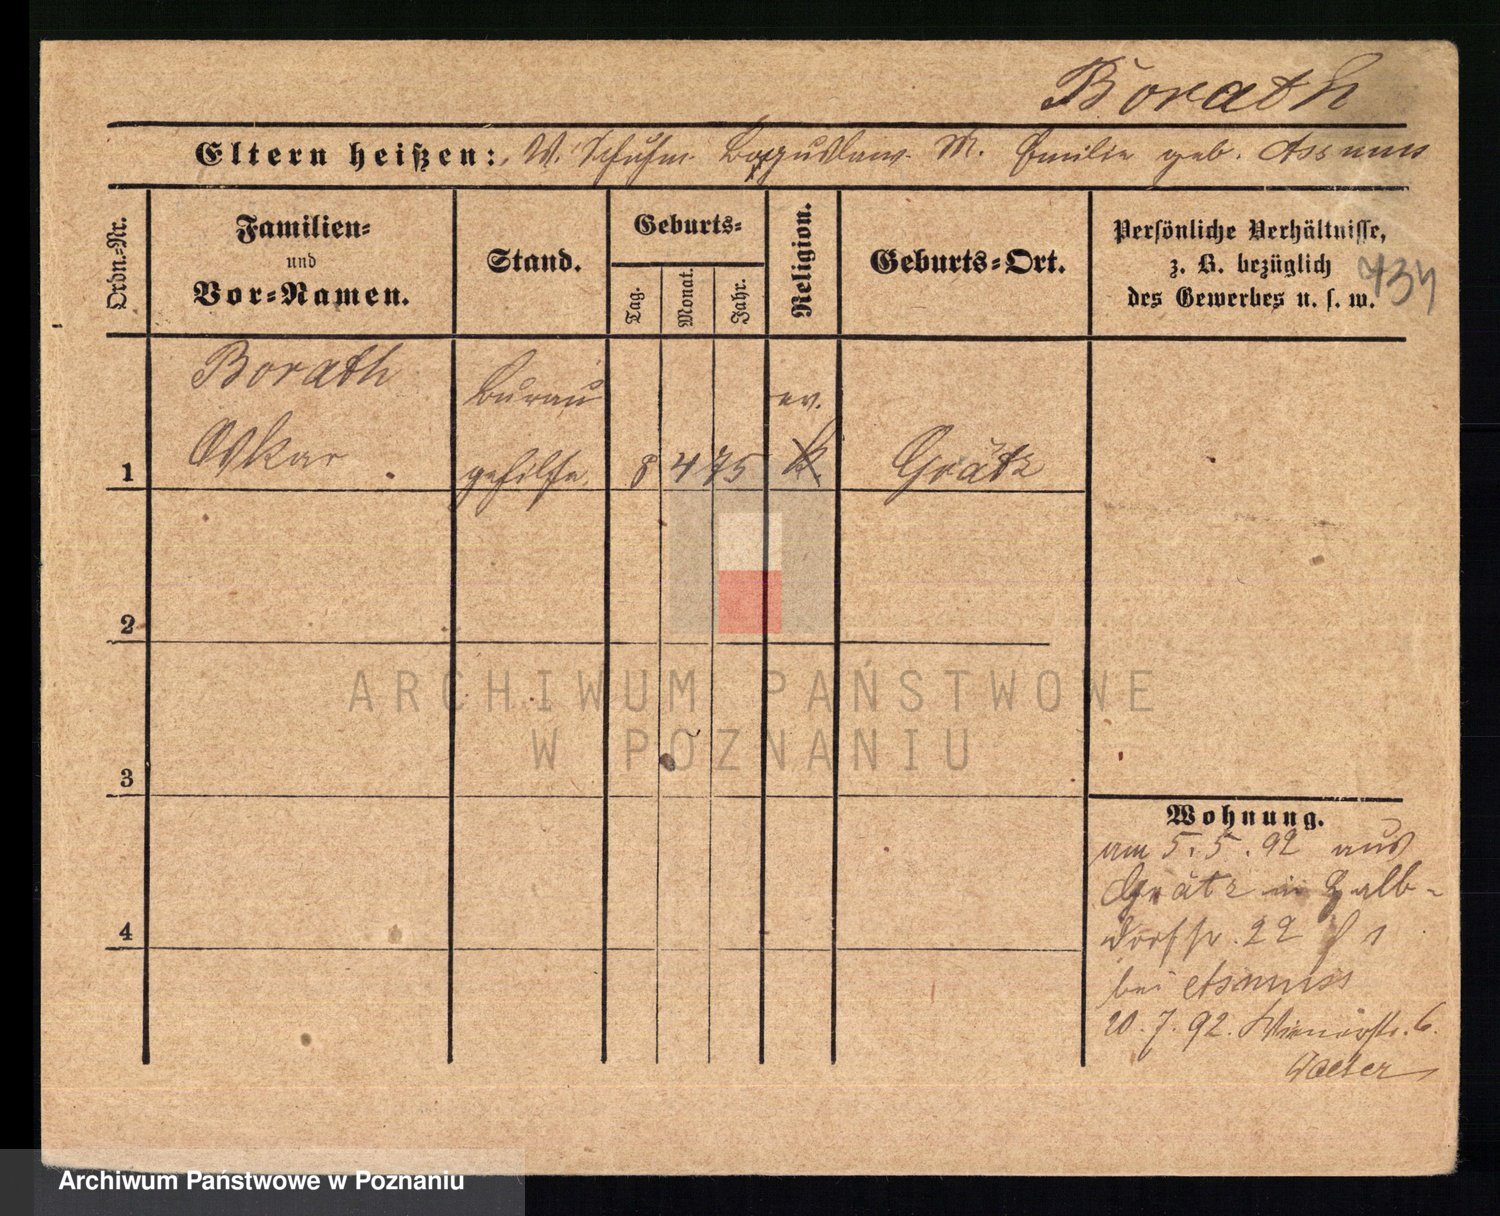 Borath
Eltern heißen: V. Schuhm. Boguslaw. M. Emilie geb. Assmus
Ordn.-Nr.
Familien-
und
Vor-Namen.
Stand.
Geburts-
Tag.
Monat.
Jahr.
Religion.
Geburts-Ort.
Persönliche Verhältnisse,
z. B. bezüglich
des Gewerbes u. s. w.
Borath
Oskar
Bureau
gehilfe
8 4 75
ev.
k
Grätz
1
2
3
4
Wohnung.
am 5.5.92 aus
Grätz in Halb-
dorfstr. 22
bei Asmuss
20.7.92. Wienerstr. 6.
ARCHIWUM PAŃSTWOWE
W POZNANIU
Archiwum Państwowe w Poznaniu